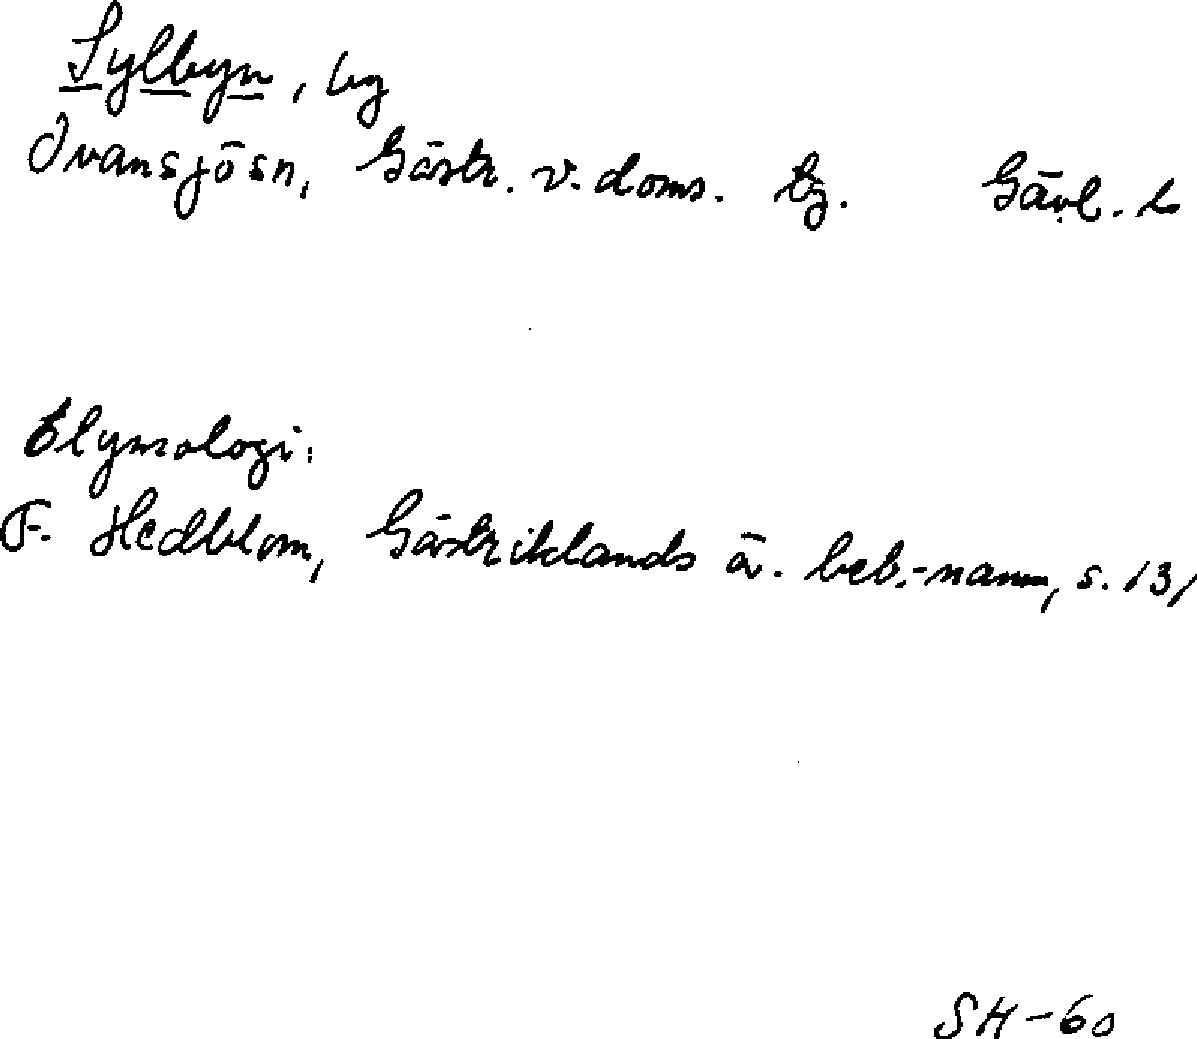 Sylbyn, by
Ovansjö sn, Gästr. v. doms. tg. Gävl. l
Etymologi:
F. Hedblom, Gästriklands ä. beb.-namn, s. 131
SH-60